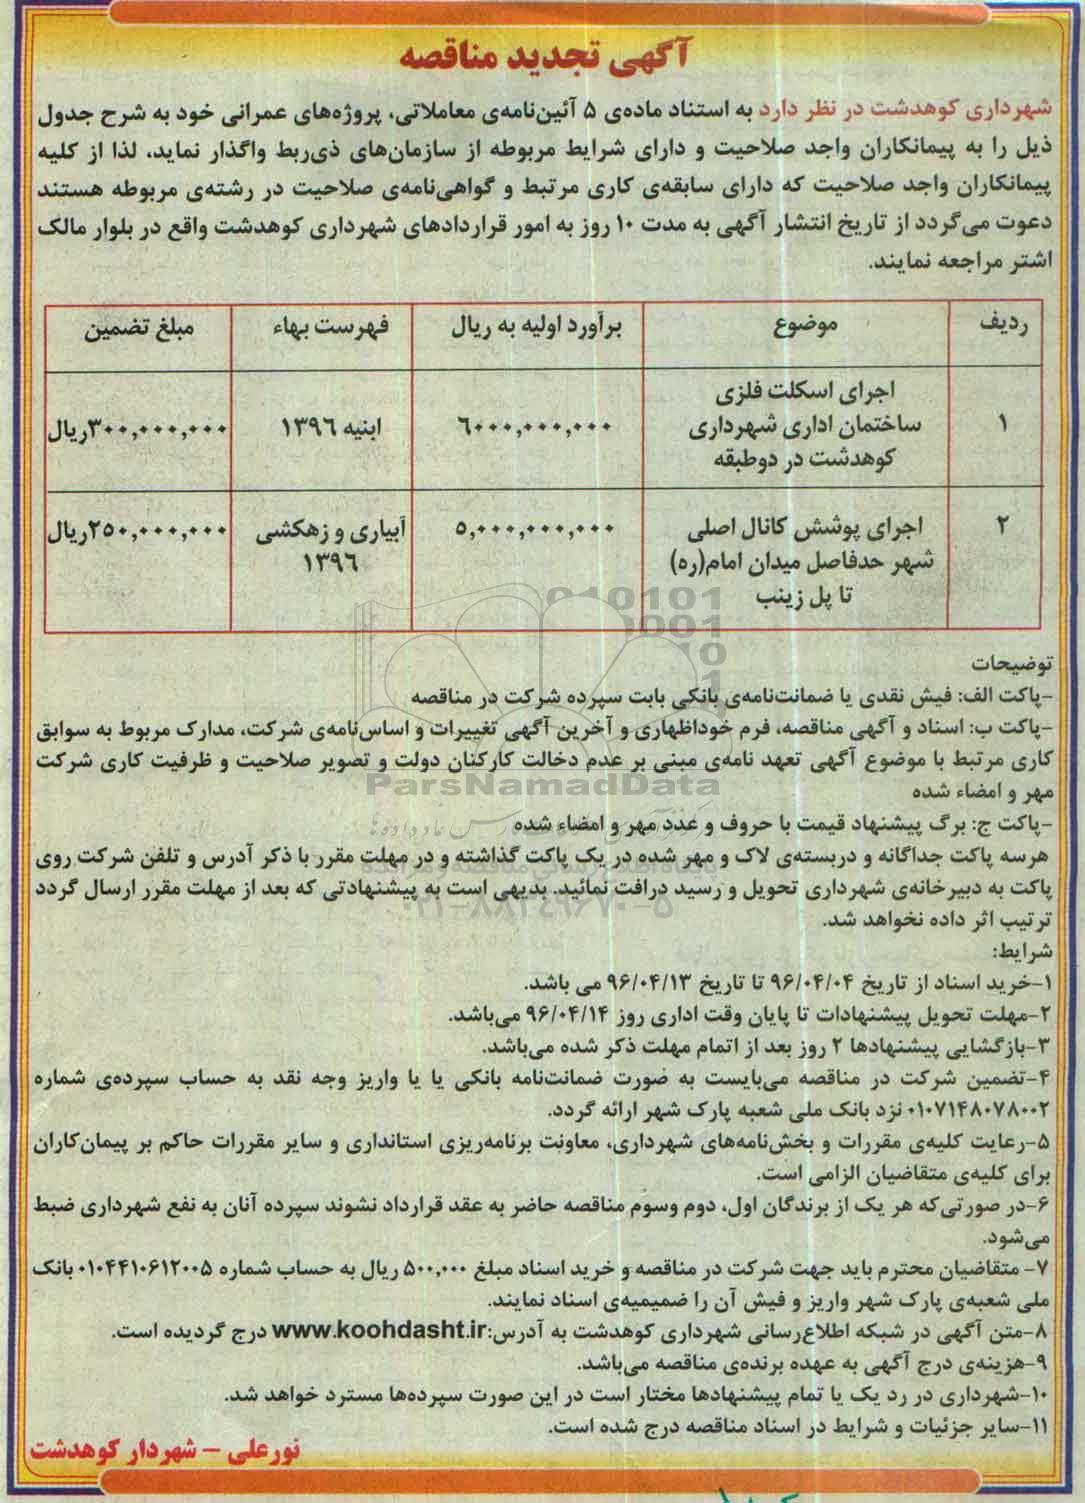 آگهی تجدید مناقصه
شهرداری کوهدشت در نظر دارد به استناد ماده‌ی ۵ آئین‌نامه‌ی معاملاتی، پروژه‌های عمرانی خود به شرح جدول
ذیل را به پیمانکاران واجد صلاحیت و دارای شرایط مربوطه از سازمان‌های ذی‌ربط واگذار نماید، لذا از کلیه
پیمانکاران واجد صلاحیت که دارای سابقه‌ی کاری مرتبط و گواهی‌نامه‌ی صلاحیت در رشته‌ی مربوطه هستند
دعوت می‌گردد از تاریخ انتشار آگهی به مدت ۱۰ روز به امور قراردادهای شهرداری کوهدشت واقع در بلوار مالک
اشتر مراجعه نمایند.
ردیف موضوع برآورد اولیه به ریال فهرست بهاء مبلغ تضمین
اجرای اسکلت فلزی
۱ ساختمان اداری شهرداری ۶۰۰۰,۰۰۰,۰۰۰ ابنیه ۱۳۹۶ ۳۰۰,۰۰۰,۰۰۰ریال
کوهدشت در دوطبقه
۲ اجرای پوشش کانال اصلی ۵,۰۰۰,۰۰۰,۰۰۰ آبیاری و زهکشی ۲۵۰,۰۰۰,۰۰۰ریال
شهر حدفاصل میدان امام(ره) ۱۳۹۶
تا پل زینب
توضیحات
-پاکت الف: فیش نقدی یا ضمانت‌نامه‌ی بانکی بابت سپرده شرکت در مناقصه
-پاکت ب: اسناد و آگهی مناقصه، فرم خوداظهاری و آخرین آگهی تغییرات و اساس‌نامه‌ی شرکت، مدارک مربوط به سوابق
کاری مرتبط با موضوع آگهی تعهد نامه‌ی مبنی بر عدم دخالت کارکنان دولت و تصویر صلاحیت و ظرفیت کاری شرکت
ParsNamadData
مهر و امضاء شده
-پاکت ج: برگ پیشنهاد قیمت با حروف و عدد مهر و امضاء شده
هرسه پاکت جداگانه و دربسته‌ی لاک و مهر شده در یک پاکت گذاشته و در مهلت مقرر با ذکر آدرس و تلفن شرکت روی
پاکت به دبیرخانه‌ی شهرداری تحویل و رسید درافت نمائید. بدیهی است به پیشنهادتی که بعد از مهلت مقرر ارسال گردد
۰۲۱-۸۸۳۴۹۶۷۰-۵
ترتیب اثر داده نخواهد شد.
شرایط:
۱-خرید اسناد از تاریخ ۹۶/۰۴/۰۴ تا تاریخ ۹۶/۰۴/۱۳ می باشد.
۲-مهلت تحویل پیشنهادات تا پایان وقت اداری روز ۹۶/۰۴/۱۴ می‌باشد.
۳-بازگشایی پیشنهادها ۲ روز بعد از اتمام مهلت ذکر شده می‌باشد.
۴-تضمین شرکت در مناقصه می‌بایست به صورت ضمانت‌نامه بانکی یا یا واریز وجه نقد به حساب سپرده‌ی شماره
۰۱۰۷۱۴۸۰۷۸۰۰۲ نزد بانک ملی شعبه پارک شهر ارائه گردد.
۵-رعایت کلیه‌ی مقررات و بخش‌نامه‌های شهرداری، معاونت برنامه‌ریزی استانداری و سایر مقررات حاکم بر پیمان‌کاران
برای کلیه‌ی متقاضیان الزامی است.
۶-در صورتی‌که هر یک از برندگان اول، دوم وسوم مناقصه حاضر به عقد قرارداد نشوند سپرده آنان به نفع شهرداری ضبط
می‌شود.
۷- متقاضیان محترم باید جهت شرکت در مناقصه و خرید اسناد مبلغ ۵۰۰,۰۰۰ ریال به حساب شماره ۰۱۰۴۴۱۰۶۱۲۰۰۵ بانک
ملی شعبه‌ی پارک شهر واریز و فیش آن را ضمیمیه‌ی اسناد نمایند.
۸-متن آگهی در شبکه اطلاع‌رسانی شهرداری کوهدشت به آدرس:www.koohdasht.ir درج گردیده است.
۹-هزینه‌ی درج آگهی به عهده برنده‌ی مناقصه می‌باشد.
۱۰-شهرداری در رد یک یا تمام پیشنهادها مختار است در این صورت سپرده‌ها مسترد خواهد شد.
۱۱-سایر جزئیات و شرایط در اسناد مناقصه درج شده است.
نورعلی – شهردار کوهدشت